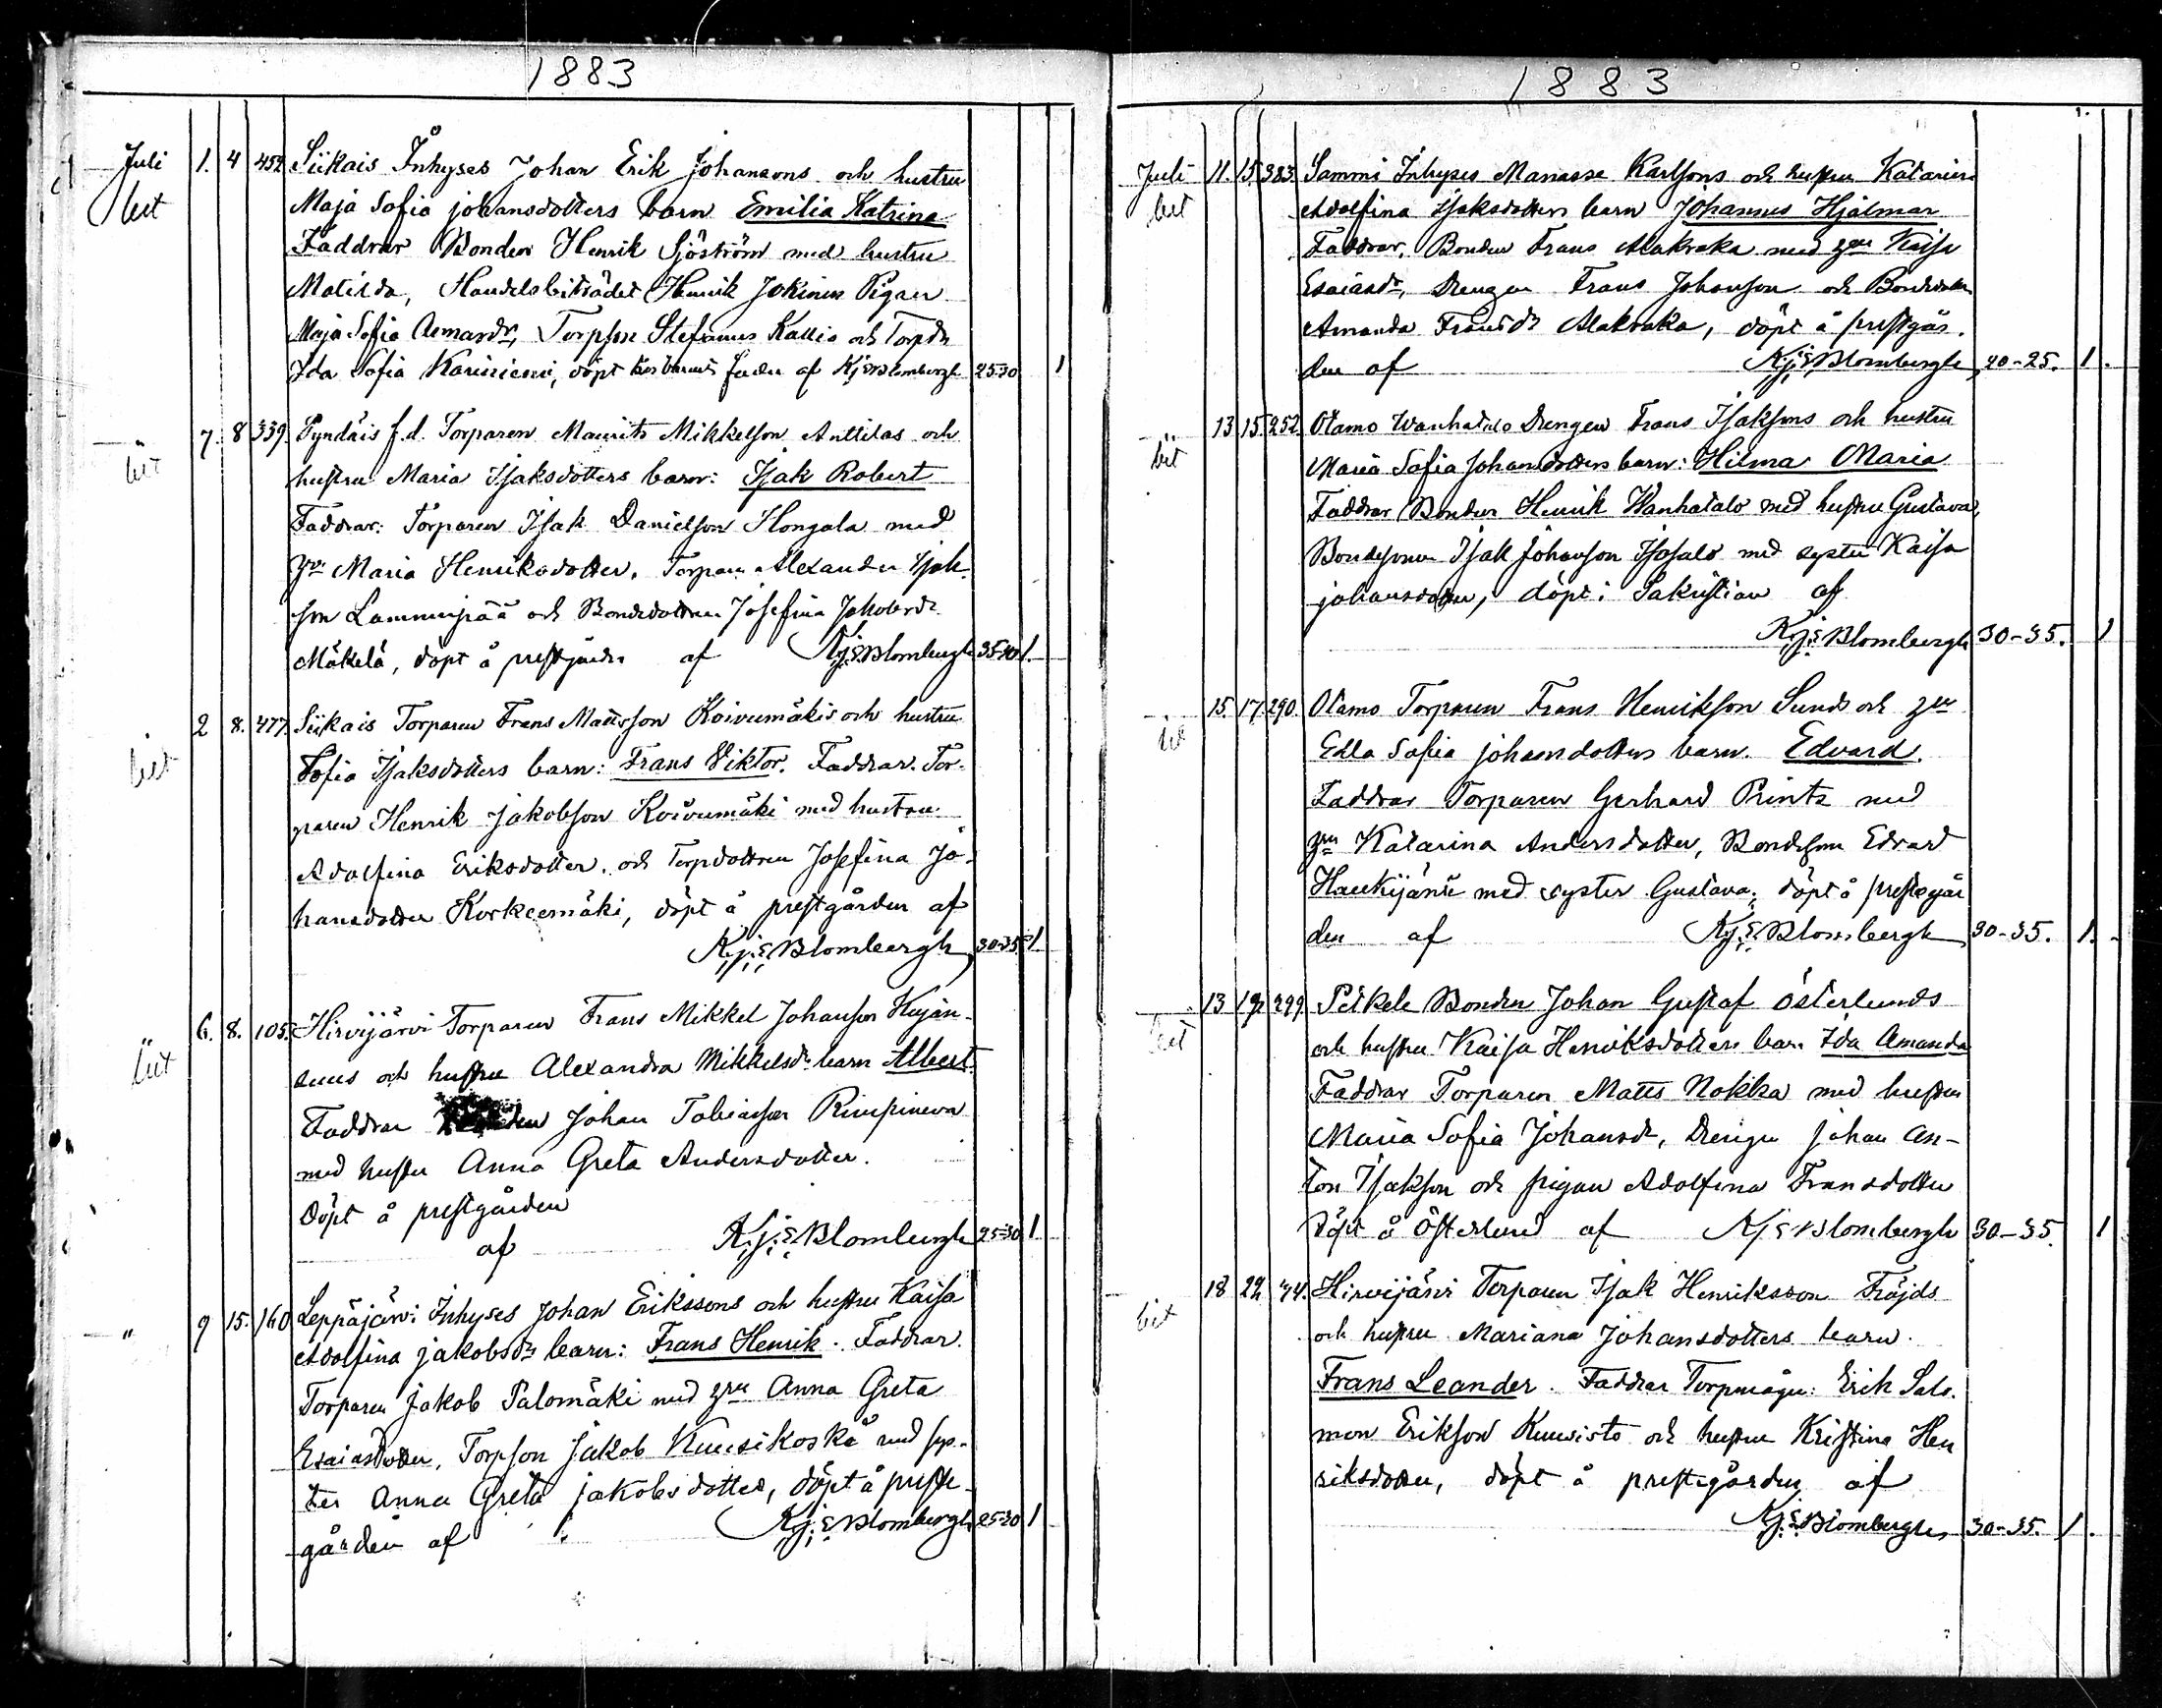 1883
Juli 1. 4 452 Siikais Inhyses Johan Erik Johansons och hustru
bet Maja Sofia Johansdotters barn Emilia Katrina
Faddrar Bonden Henrik Sjöström med hustru
Matilda, Handelsbiträdet Henrik Jokinen Pigan
Maja Sofia Aemansdr, Torpson Stefanus Kallio och Torpdr
Ida Sofia Kariniemi, döpt hos barnets fader af K.j.E. Blombergh 25-30 1
7. 8 339. Pyndäis f.d. Torparen Maurits Mikkelson Anttilas och
bet hustru Maria Isaksdotters barn: Isak Robert
Faddrar: Torparen Isak Danielson Hongala med
Maria Henriksdotter, Torparen Alexander Isak-
son Lamminpää och Bondedottren Josefina Jakobsdr
Mäkelä, döpt å prestgården af K.j.E. Blombergh 35-40 1.
2 8. 477. Siikais Torparen Frans Mattsson Koivumäkis och hustru
bet Sofia Isaksdotters barn: Frans Viktor. Faddrar. Tor-
paren Henrik Jakobson Koivumäki med hustru
Adolfina Eriksdotter. och Torpdottren Josefina Jo-
hansdotter Korkeemäki, döpt å prestgården af
K.j.E. Blombergh 30-35 1
6. 8. 105. Hirvijärvi Torparen Frans Mikkel Johanson Kujan-
bet suus och hustru Alexandra Mikkelsdr barn Albert.
Faddrar Johan Tobiasson Rimpineva
med hustru Anna Greta Andersdotter.
Döpt å prestgården
af K.j.E. Blombergh 25-30 1
" 9 15. 160 Leppäjärvi Inhyses Johan Erikssons och hustru Kaisa
Adolfina Jakobsdr barn: Frans Henrik. Faddrar.
Torparen Jakob Palomäki med Anna Greta
Esaiasdotter, Torpson Jakob Kuusikoski med sys-
ter Anna Greta Jakobsdotter, döpt å prest-
gården af K.j.E. Blombergh 25-30 1
1883
Juli 11. 15. 383. Sammi Inhyses Manasse Karlsons och hustru Katarina
bet Adolfina Isaksdotters barn Johannes Hjalmar
Faddrar. Bonden Frans Alakraka med Kaisa
Esaiasdr, Drengen Frans Johanson och Bondedottern
Amanda Fransdr Alakraka, döpt å prestgår-
den af K.j.E. Blombergh 20-25. 1.
13 15. 252. Otamo Wanhatalo Drengen Frans Isaksons och hustru
bet Maria Sofia Johansdotters barn: Hilma Maria
Faddrar Bonden Henrik Wanhatalo med hustru Gustava,
Bondesonen Isak Johanson Isosalo med syster Kaisa
Johansdotter, döpt i Sakristian af
K.j.E. Blombergh 30-35. 1
15. 17. 290. Otamo Torparen Frans Henrikson Sunds och
bet Edla Sofia Johansdotters barn. Edvard.
Faddrar Torparen Gerhard Printz med
Katarina Andersdotter, Bondeson Edvard
Haukijänsi med syster Gustava, döpt å prestegår
den af K.j.E. Blombergh 30-35. 1.
13 19 299. Petkele Bonden Johan Gustaf Österlunds
bet och hustru Kaisa Henriksdotters barn Ida Amanda
Faddrar Torparen Matts Nokka med hustru
Maria Sofia Johansdr, Drengen Johan An-
ton Isakson och pigan Adolfina Fransdotter
Döpt å Österlund af K.j.E. Blombergh 30-35. 1
18 22. 74. Hirvijärvi Torparen Isak Henriksson Fröjds
bet och hustru Mariana Johansdotters barn.
Frans Leander. Faddrar Torpmågen: Erik Salo-
mon Erikson Kuusisto och hustru Kristina Hen
riksdotter, döpt å prestegården af
K.j.E. Blombergh 30-35. 1.